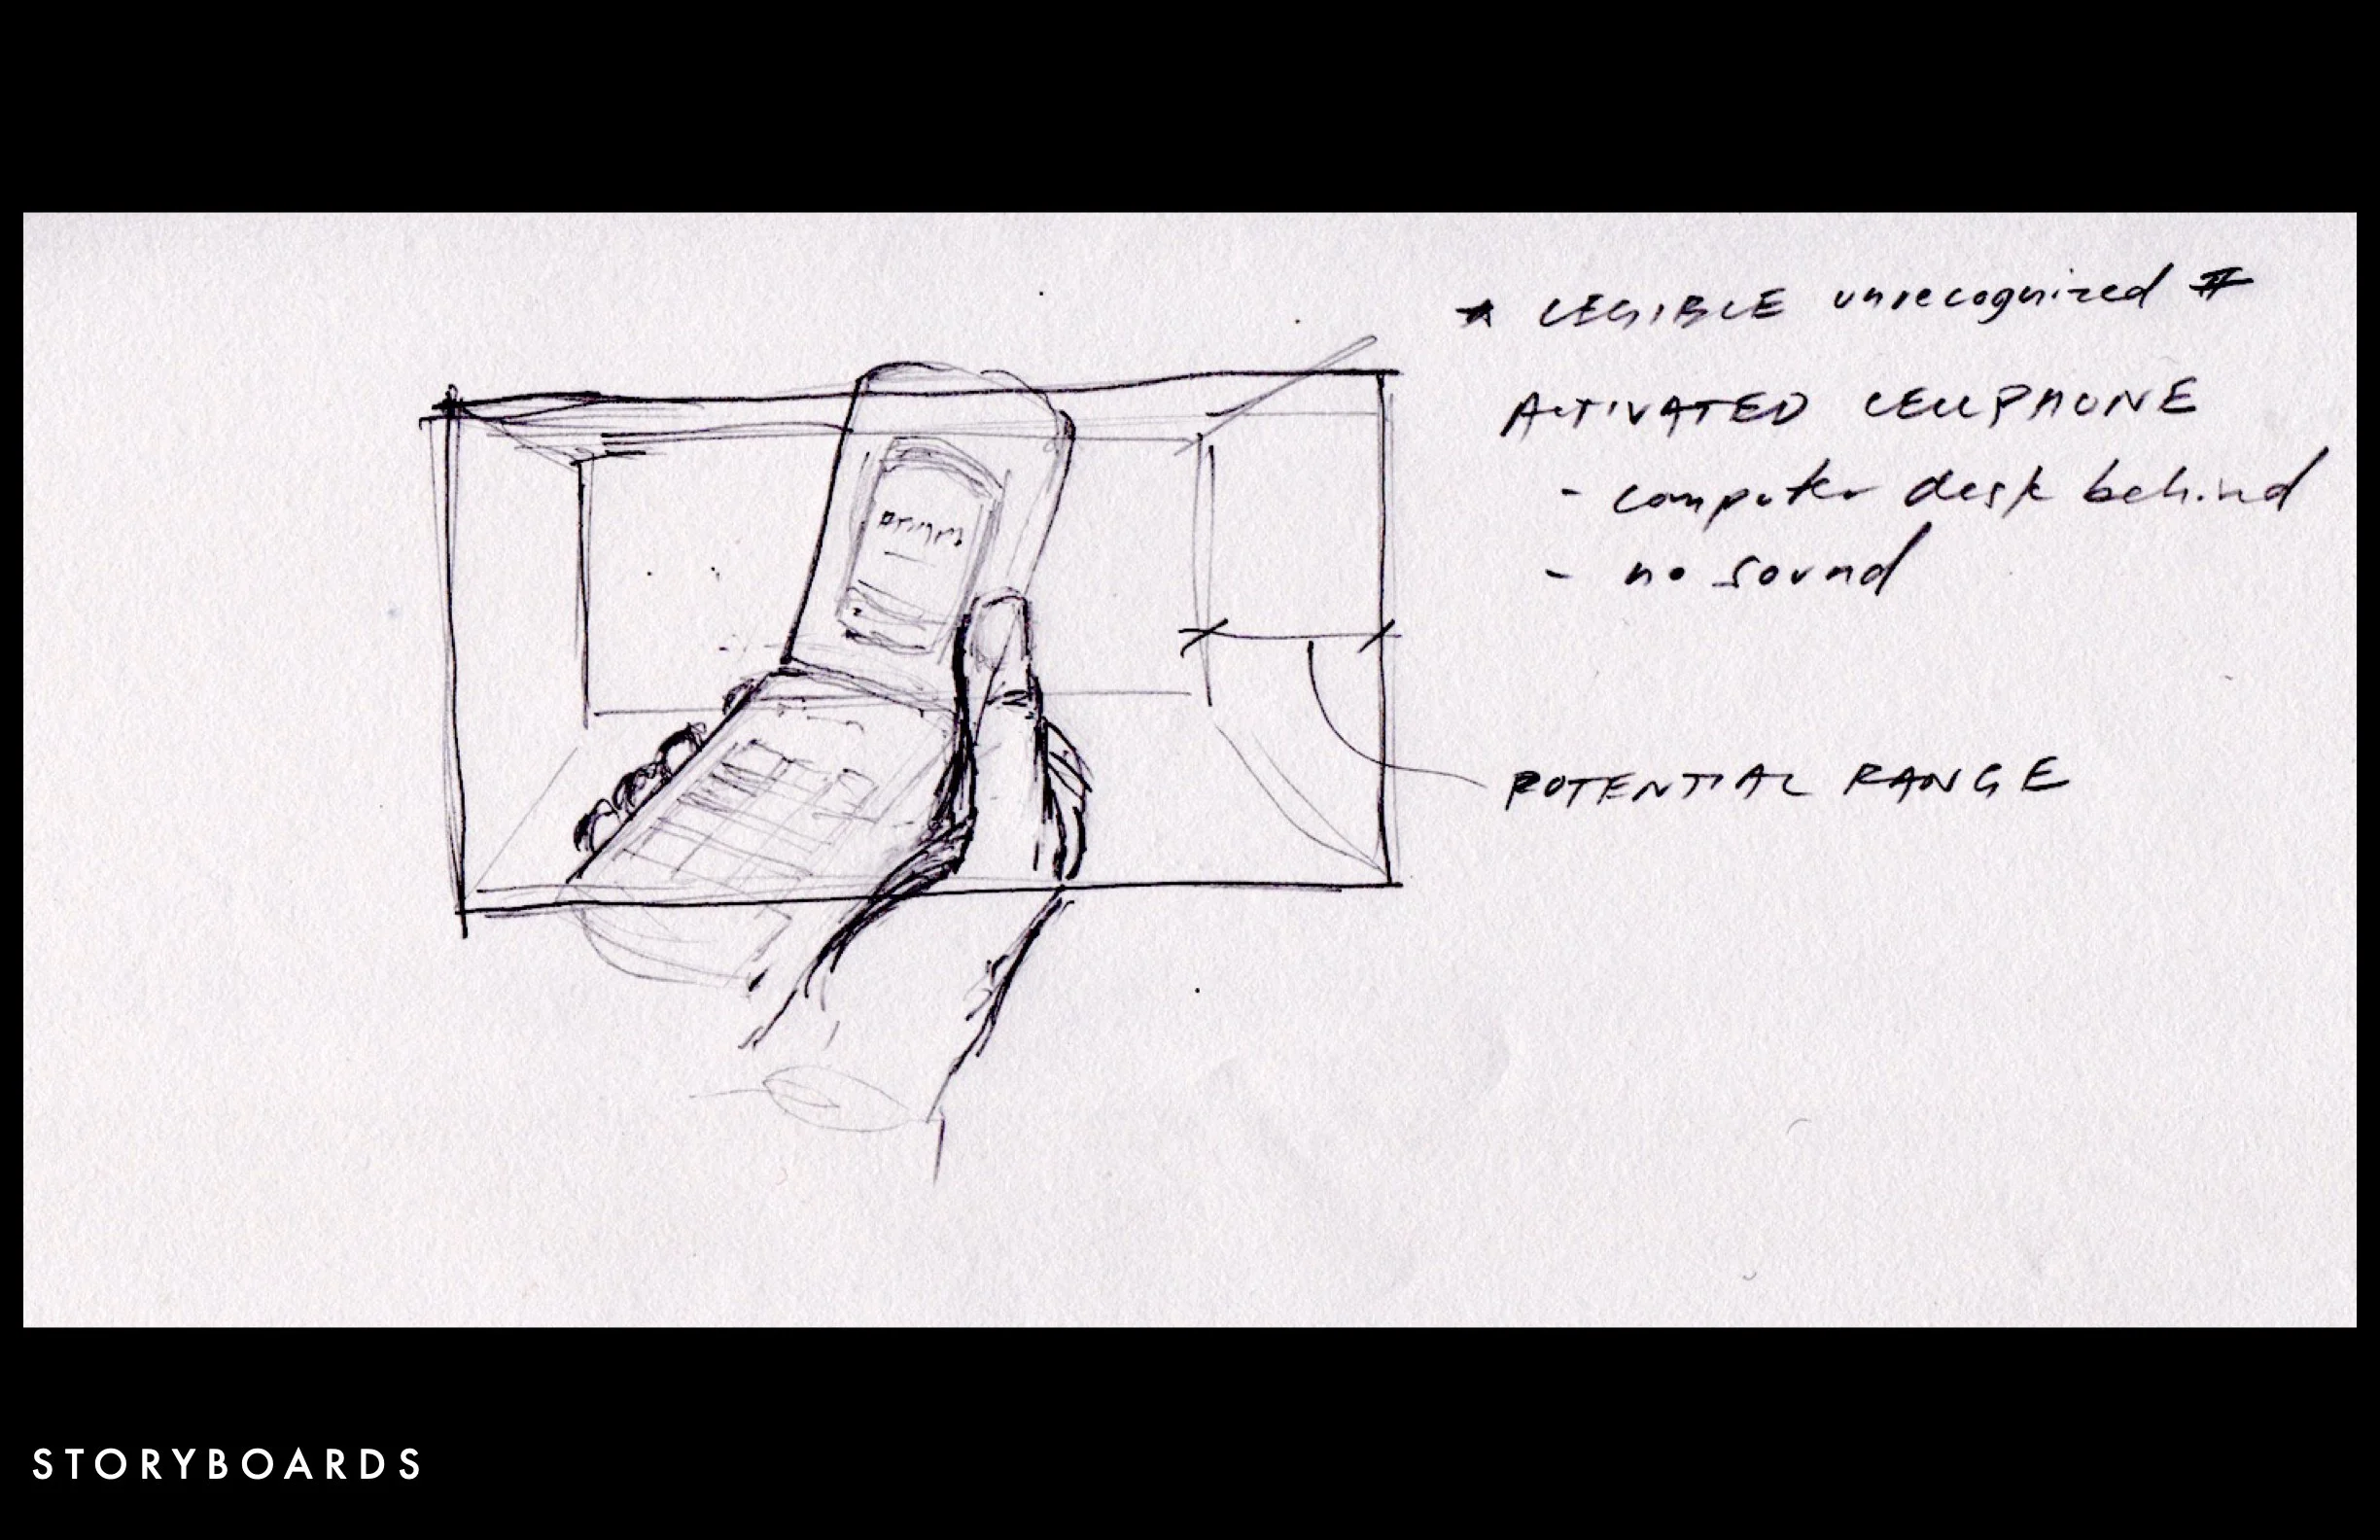 * LEGIBLE unrecognized #
ACTIVATED CELLPHONE
- computer desk behind
- no sound
POTENTIAL RANGE
STORYBOARDS